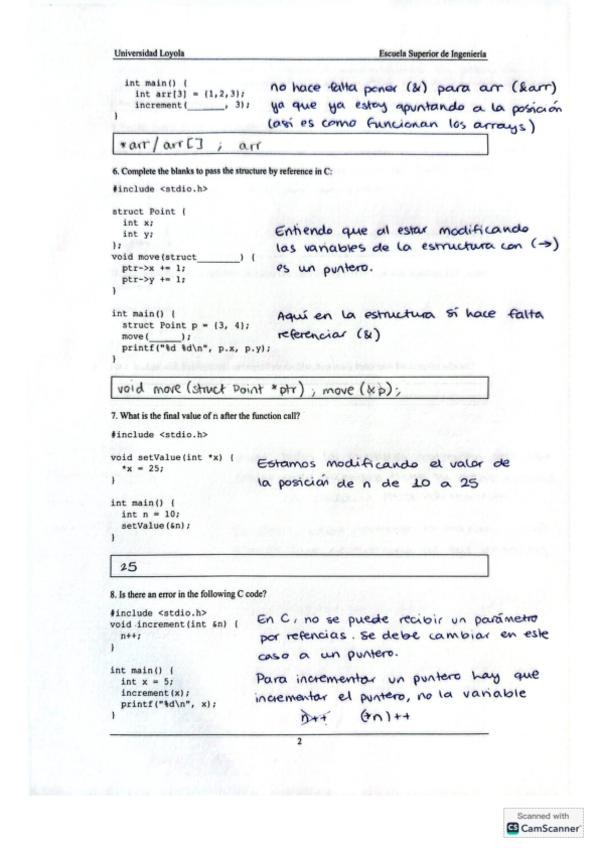 Universidad Loyola Escuela Superior de Ingeniería
int main() {
int arr[3] = {1,2,3};
increment(______, 3);
}
no hace falta poner (&) para arr (&arr)
ya que ya estoy apuntando a la posición
(así es como funcionan los arrays)
*arr/arr[] ; arr
6. Complete the blanks to pass the structure by reference in C:
#include <stdio.h>
struct Point {
int x;
int y;
};
void move(struct_______) {
ptr->x += 1;
ptr->y += 1;
}
Entiendo que al estar modificando
las variables de la estructura con (→)
es un puntero.
int main() {
struct Point p = {3, 4};
move(_____);
printf("%d %d\n", p.x, p.y);
}
Aquí en la estructura sí hace falta
referenciar (&)
void move (struct Point *ptr) ; move (&p);
7. What is the final value of n after the function call?
#include <stdio.h>
void setValue(int *x) {
*x = 25;
}
int main() {
int n = 10;
setValue(&n);
}
Estamos modificando el valor de
la posición de n de 10 a 25
25
8. Is there an error in the following C code?
#include <stdio.h>
void increment(int &n) {
n++;
}
int main() {
int x = 5;
increment(x);
printf("%d\n", x);
}
En C, no se puede recibir un parámetro
por refencias. Se debe cambiar en este
caso a un puntero.
Para incrementar un puntero hay que
incrementar el puntero, no la variable
n++ (*n)++
2
Scanned with
CS CamScanner